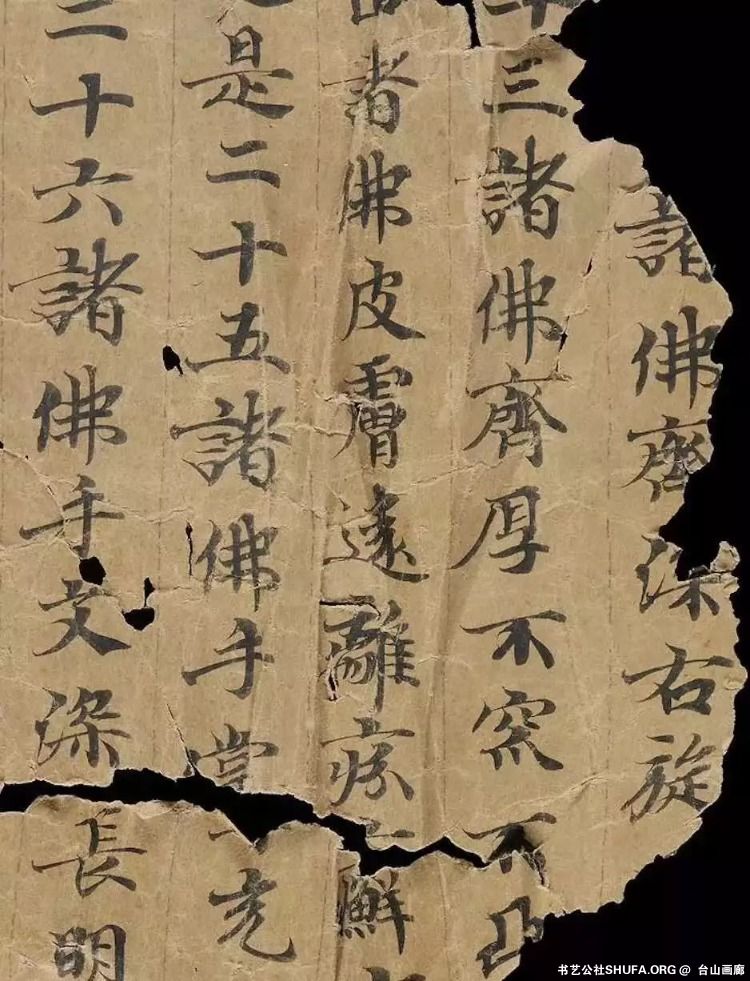 諸佛齊深右旋
三諸佛齊厚不窊不凸
諸佛皮膚遠離癬
是二十五諸佛手掌充
二十六諸佛手文深長明
书艺公社SHUFA.ORG @ 台山画廊